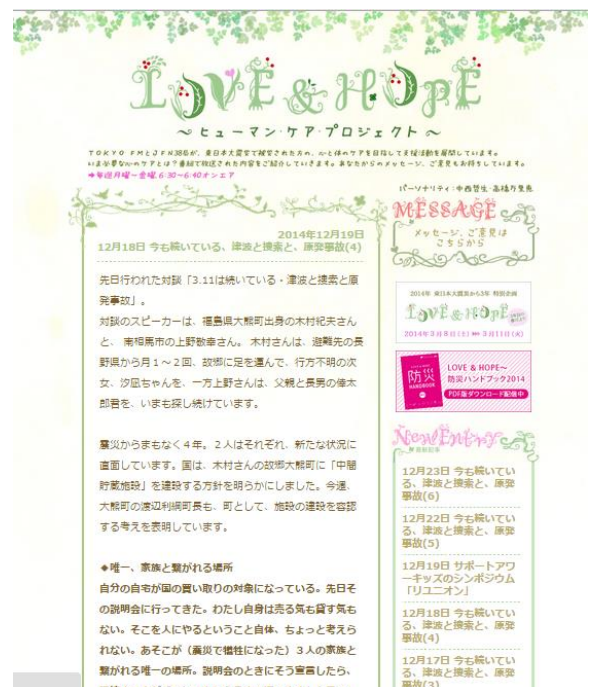 LOVE & HOPE
～ヒューマン・ケア・プロジェクト～
TOKYO FMとJFN38局が、東日本大震災で被災された方の、心と体のケアを目指して支援活動を展開しています。
いま必要な心のケアとは？番組で放送された内容をご紹介していきます。あなたからのメッセージ、ご意見もお待ちしています。
➡毎週月曜〜金曜 6:30〜6:40オンエア
パーソナリティ：中西哲生・高橋万里恵
2014年12月19日
12月18日 今も続いている、津波と捜索と、原発事故(4)
先日行われた対談「3.11は続いている・津波と捜索と原
発事故」。
対談のスピーカーは、福島県大熊町出身の木村紀夫さん
と、 南相馬市の上野敬幸さん。 木村さんは、避難先の長
野県から月１～２回、故郷に足を運んで、行方不明の次
女、汐凪ちゃんを、一方上野さんは、父親と長男の倖太
郎君を、いまも探し続けています。
震災からまもなく４年。２人はそれぞれ、新たな状況に
直面しています。国は、木村さんの故郷大熊町に「中間
貯蔵施設」を建設する方針を明らかにしました。今週、
大熊町の渡辺利綱町長も、町として、施設の建設を容認
する考えを表明しています。
◆唯一、家族と繋がれる場所
自分の自宅が国の買い取りの対象になっている。先日そ
の説明会に行ってきた。わたし自身は売る気も貸す気も
ない。そこを人にやるということ自体、ちょっと考えら
れない。あそこが（震災で犠牲になった）３人の家族と
繋がれる唯一の場所。説明会のときにそう宣言したら、
MESSAGE
メッセージ、ご意見は
こちらから
2014年 東日本大震災から3年 特別企画
LOVE & HOPE
2014年3月8日(土) 3月11日(火)
防災
HANDBOOK
LOVE & HOPE～
防災ハンドブック2014
PDF版ダウンロード配信中
New Entry
最新記事
12月23日 今も続いてい
る、津波と捜索と、原発
事故(6)
12月22日 今も続いてい
る、津波と捜索と、原発
事故(5)
12月19日 サポートアワ
ーキッズのシンポジウム
「リユニオン」
12月18日 今も続いてい
る、津波と捜索と、原発
事故(4)
12月17日 今も続いてい
る、津波と捜索と、原発
事故(3)